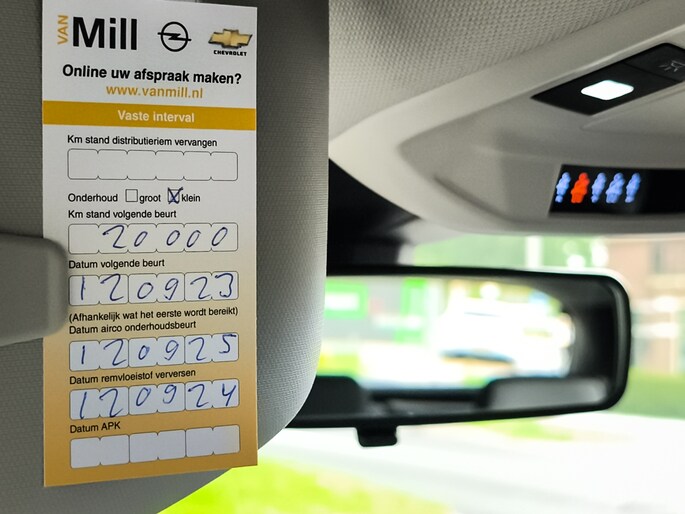 VAN Mill
CHEVROLET
Online uw afspraak maken?
www.vanmill.nl
Vaste interval
Km stand distributieriem vervangen
Onderhoud groot klein
Km stand volgende beurt
20000
Datum volgende beurt
120923
(Afhankelijk wat het eerste wordt bereikt)
Datum airco onderhoudsbeurt
120925
Datum remvloeistof verversen
120924
Datum APK